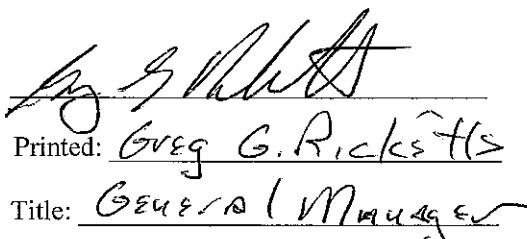 Printed: Greg G. Ricketts
Title: General Manager